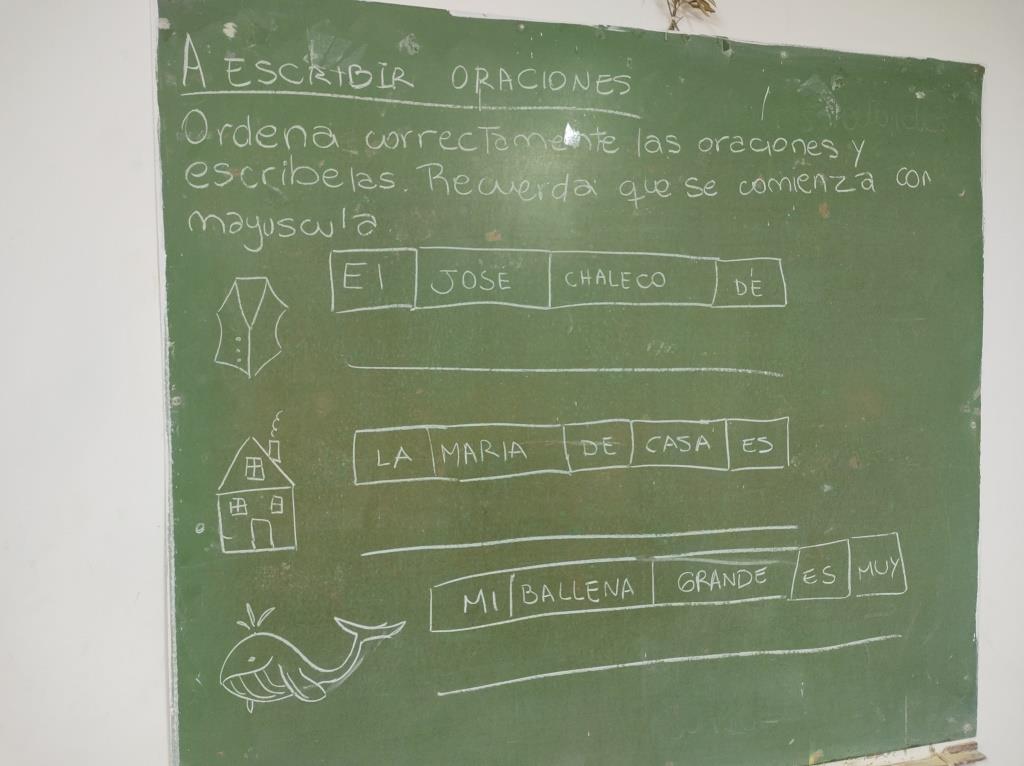 A ESCRIBIR ORACIONES
Ordena correctamente las oraciones y
escribelas. Recuerda que se comienza con
mayuscula
El JOSE CHALECO DE
LA MARIA DE CASA ES
MI BALLENA GRANDE ES MUY